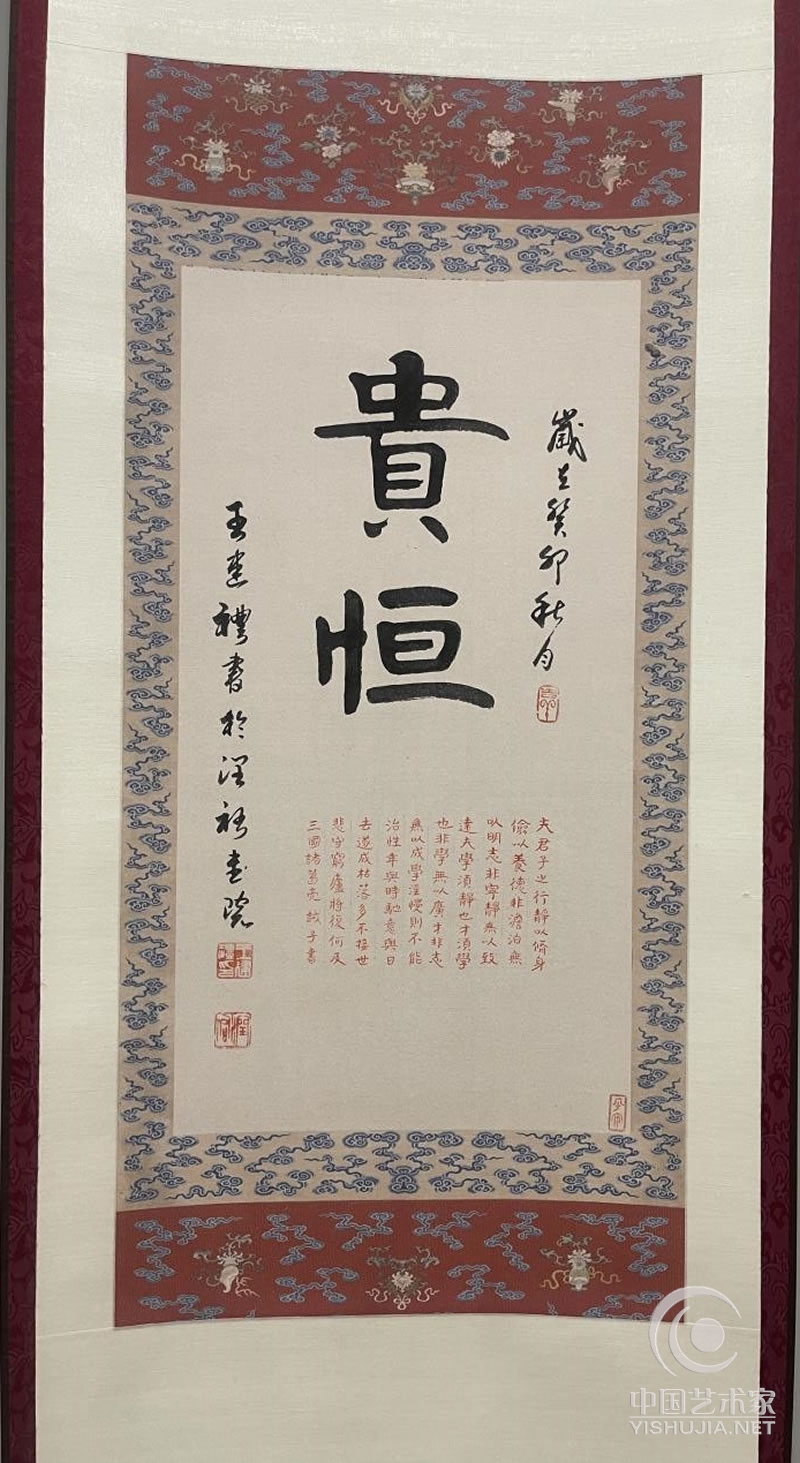 歲在癸卯秋月
貴
恒
夫君子之行靜以脩身
儉以養德非澹泊無
以明志非寧靜無以致
遠夫學須靜也才須學
也非學無以廣才非志
無以成學淫慢則不能
治性年與時馳意與日
去遂成枯落多不接世
悲守窮廬將復何及
三國諸葛亮 誡子書
王建禮書於
中国艺术家
YISHUJIA.NET